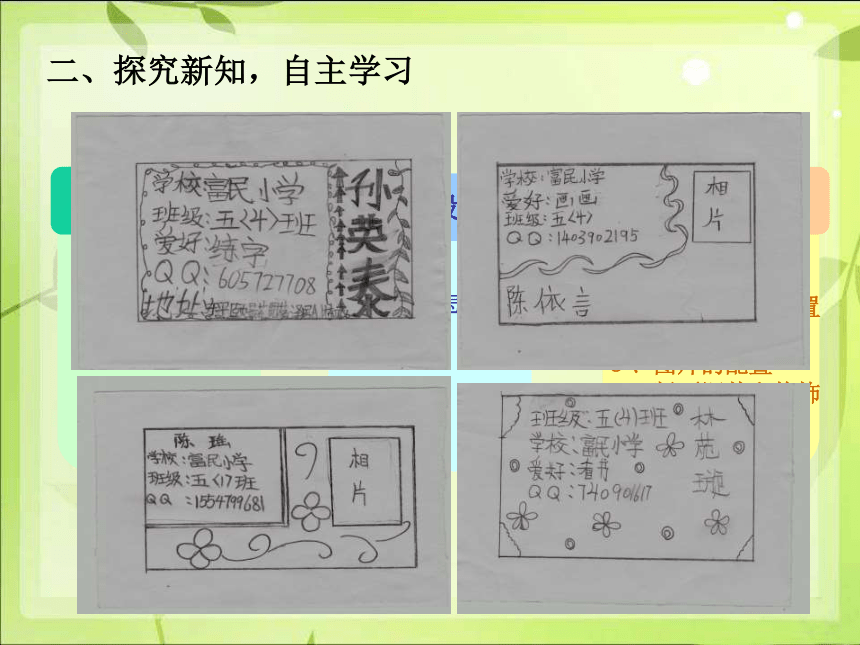 二、探究新知，自主学习
学校:富民小学
班级:五〈4〉班
爱好:练字
QQ:605727708
地址:
孙英泰
学校:富民小学
爱好:画画
班级:五〈4〉
QQ:1403902195
相片
陈依言
置
饰
陈瑶
学校:富民小学
班级:五〈1〉班
QQ:1554799681
相片
班级:五(4)班
学校:富民小学
爱好:看书
QQ:740901617
林